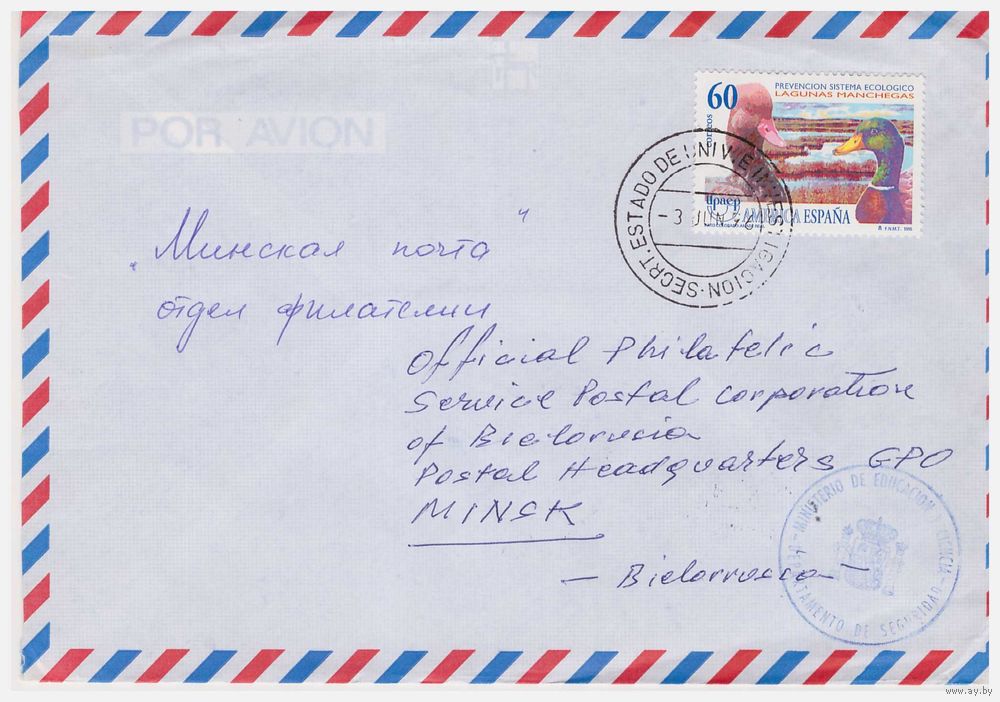 POR AVION
60
correos
PREVENCION SISTEMA ECOLOGICO
LAGUNAS MANCHEGAS
upaep
AMERICA ESPAÑA
F.N.M.T.
SECRT. ESTADO DE UNIV. E INVESTIGACION
-3 JUN
„Минская почта“
отдел филателии
Official Philatelic
Service Postal corporation
of Bielorussia
Postal Headquarters GPO
MINSK
— Bielorrusia —
MINISTERIO DE EDUCACION Y CIENCIA
DEPARTAMENTO DE SEGURIDAD
www.ay.by